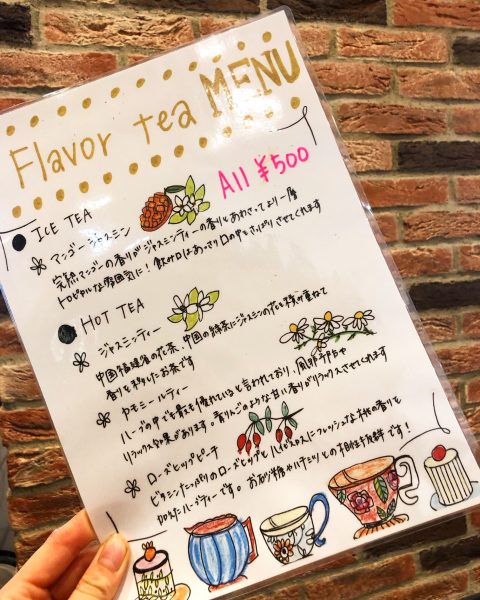 Flavor tea MENU
All ¥500
ICE TEA
マンゴージャスミン
完熟マンゴーの香りがジャスミンティーの香りとあわさってより一層
トロピカルな雰囲気に！飲み口はあっさり口の中をさっぱりさせてくれます
HOT TEA
ジャスミンティー
中国福建省の花茶、中国の緑茶にジャスミンの花を積み重ねて
香りを移したお茶です
カモミールティー
ハーブの中でも最も優れていると言われており、風邪予防や
リラックス効果があります。青りんごのような甘い香りがリラックスさせてくれます
ローズヒップピーチ
ビタミンたっぷりのローズヒップとハイビスカスにフレッシュな桃の香りを
加えたハーブティーです。お砂糖やハチミツとの相性抜群です！